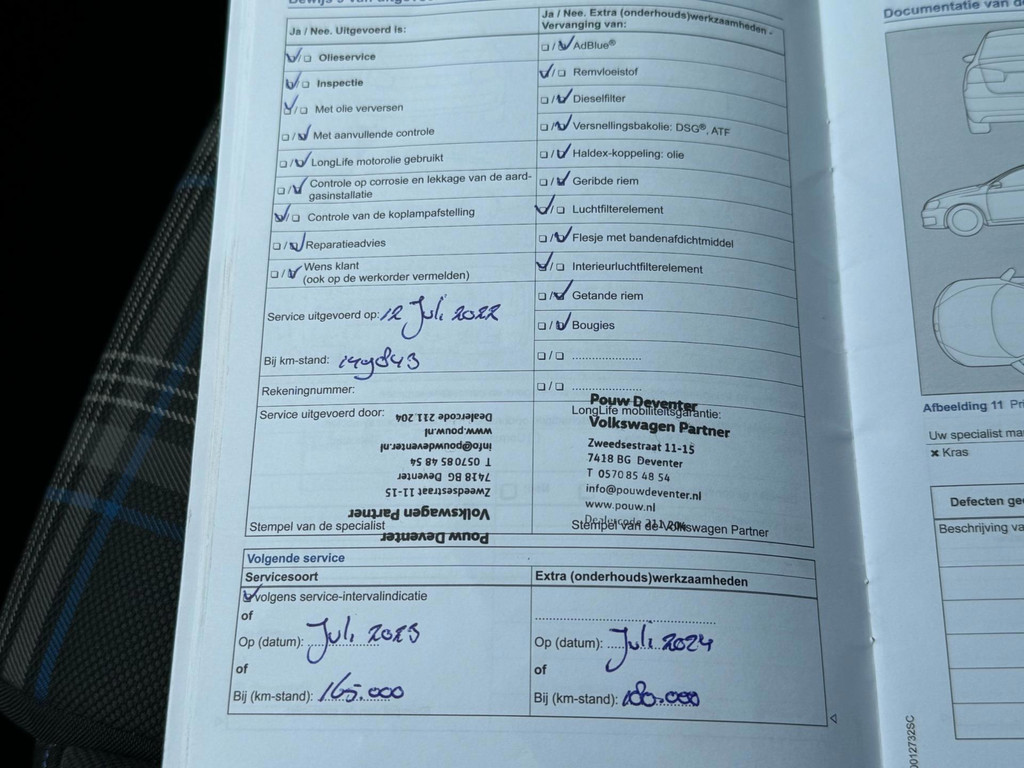 Ja / Nee. Uitgevoerd is:
Olieservice
Inspectie
Met olie verversen
Met aanvullende controle
LongLife motorolie gebruikt
Controle op corrosie en lekkage van de aard-
gasinstallatie
Controle van de koplampafstelling
Reparatieadvies
Wens klant
(ook op de werkorder vermelden)
Service uitgevoerd op: 12 Juli 2022
Bij km-stand: 149843
Rekeningnummer:
Service uitgevoerd door:
Pouw Deventer
Volkswagen Partner
Zweedsestraat 11-15
7418 BG Deventer
T 0570 85 48 54
info@pouwdeventer.nl
www.pouw.nl
Dealercode 211.204
Stempel van de specialist
Ja / Nee. Extra (onderhouds)werkzaamheden -
Vervanging van:
AdBlue®
Remvloeistof
Dieselfilter
Versnellingsbakolie: DSG®, ATF
Haldex-koppeling: olie
Geribde riem
Luchtfilterelement
Flesje met bandenafdichtmiddel
Interieurluchtfilterelement
Getande riem
Bougies
LongLife mobiliteitsgarantie:
Pouw Deventer
Volkswagen Partner
Zweedsestraat 11-15
7418 BG Deventer
T 0570 85 48 54
info@pouwdeventer.nl
www.pouw.nl
Dealercode 211.204
Stempel van de Volkswagen Partner
Volgende service
Servicesoort
volgens service-intervalindicatie
of
Op (datum): Juli 2023
of
Bij (km-stand): 165.000
Extra (onderhouds)werkzaamheden
Op (datum): Juli 2024
of
Bij (km-stand): 180.000
Documentatie van
Afbeelding 11
Uw specialist
Kras
Defecten
Beschrijving